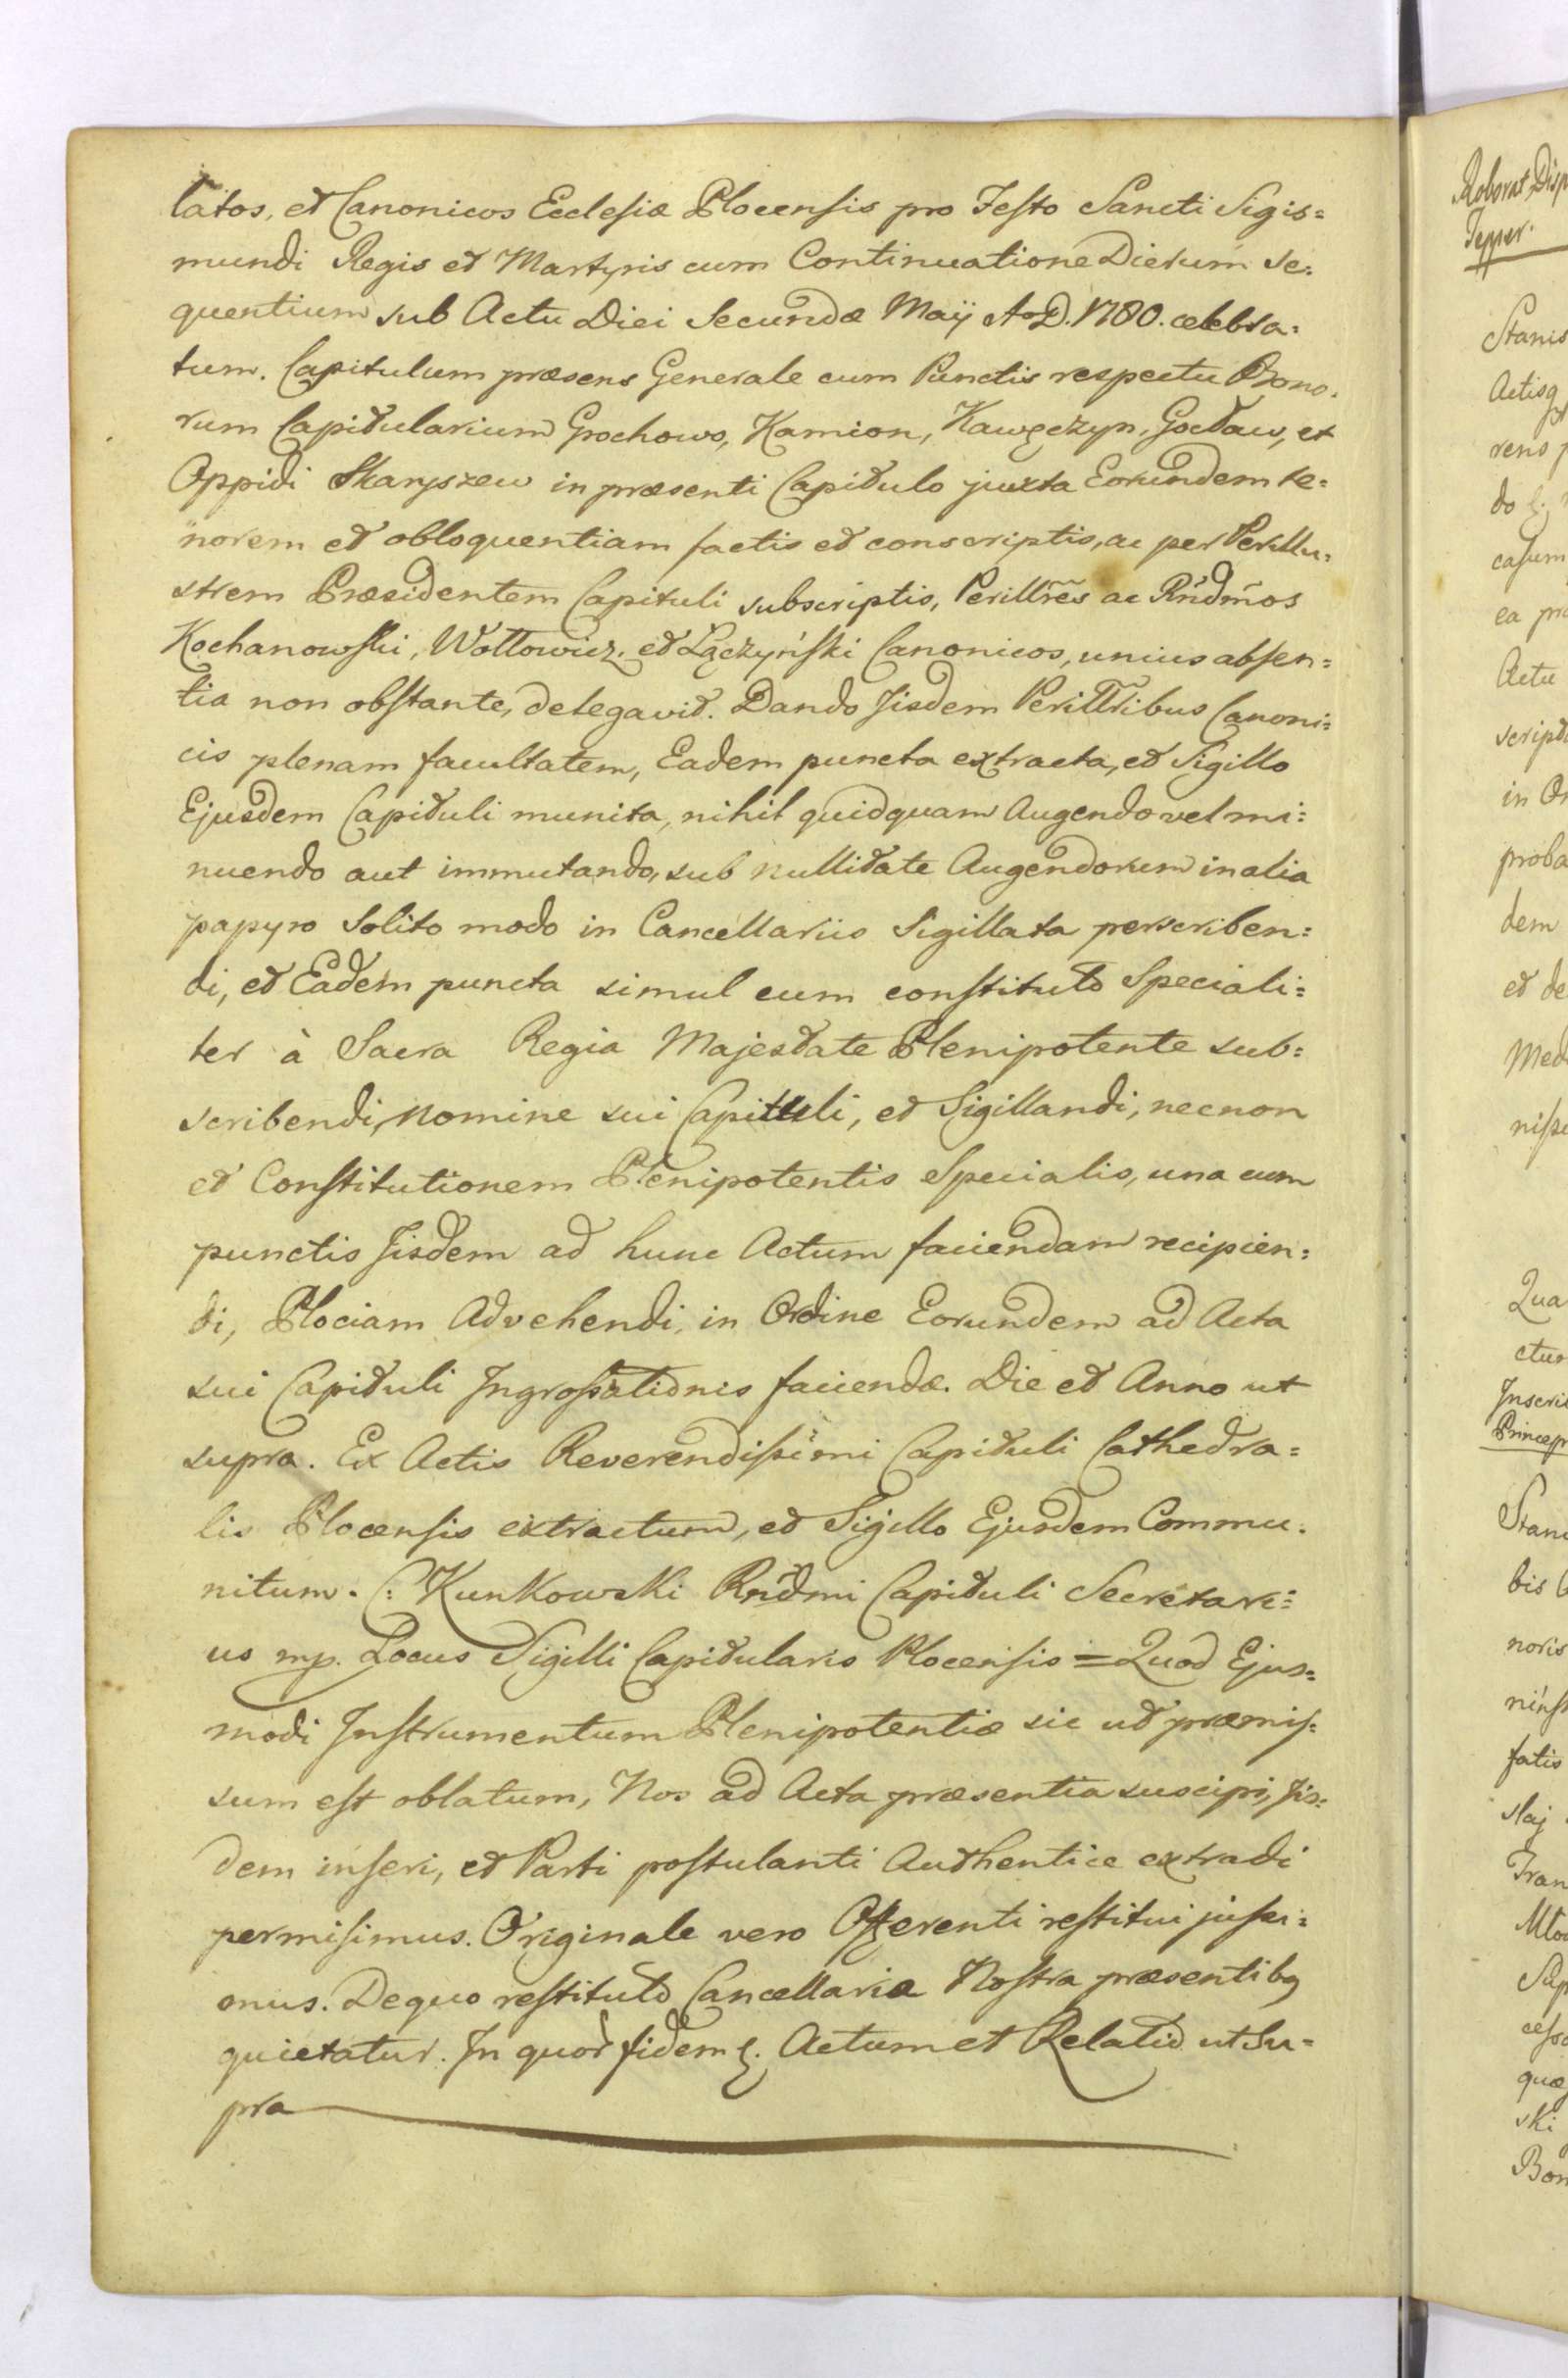 latos, et Canonicos Ecclesiæ Plocensis pro Festo Sancti Sigis=
mundi Regis et Martyris cum Continuatione Dierum se=
quentium sub Actu Diei Secundæ Maij A. D. 1780. celebra=
tum. Capitulum præsens Generale cum Punctis respectu Bono=
rum Capitularium Grochowo, Kamion, Kawęczyn, Gocław, et
Oppidi Skaryszew in præsenti Capitulo juxta Eorundem te=
norem et obloquentiam factis et conscriptis, ac per Perillu=
strem Præsidentem Capituli subscriptis, Perillres ac Rndmos
Kochanowski, Wołłowicz, et Łączyński Canonicos, unius absen=
tia non obstante, delegavit. Dando Iisdem Perillribus Canoni=
cis plenam facultatem, Eadem puncta extracta, et Sigillo
Ejusdem Capituli munita, nihil quidquam Augendo vel mi=
nuendo aut immutando, sub nullitate Augendorum in alia
papyro solito modo in Cancellariis Sigillata perscriben=
di, et Eadem puncta simul cum constituto Speciali=
ter à Sacra Regia Majestate Plenipotente sub=
scribendi, nomine sui Capituli, et Sigillandi, necnon
et Constitutionem Plenipotentis Specialis, una cum
punctis Iisdem ad hunc Actum faciendam recipien=
di, Plociam Advehendi, in Ordine Eorundem ad Acta
sui Capituli Ingrossationis faciendæ. Die et Anno ut
supra. Ex Actis Reverendissimi Capituli Cathedra=
lis Plocensis extractum, et Sigillo Ejusdem Commu=
nitum. C: Kunkowski Rndmi Capituli Secretari=
us mp. Locus Sigilli Capitularis Plocensis = Quod Ejus=
modi Instrumentum Plenipotentiæ sic ut præmis=
sum est oblatum, Nos ad Acta præsentia suscipi, Iis=
dem inseri, et Parti postulanti Authentice extradi
permisimus. Originale vero Offerenti restitui jussi=
mus. De quo restituto Cancellaria Nostra præsentibq
quietatur. In quor fidem &. Actum et Relatio ut Su=
pra